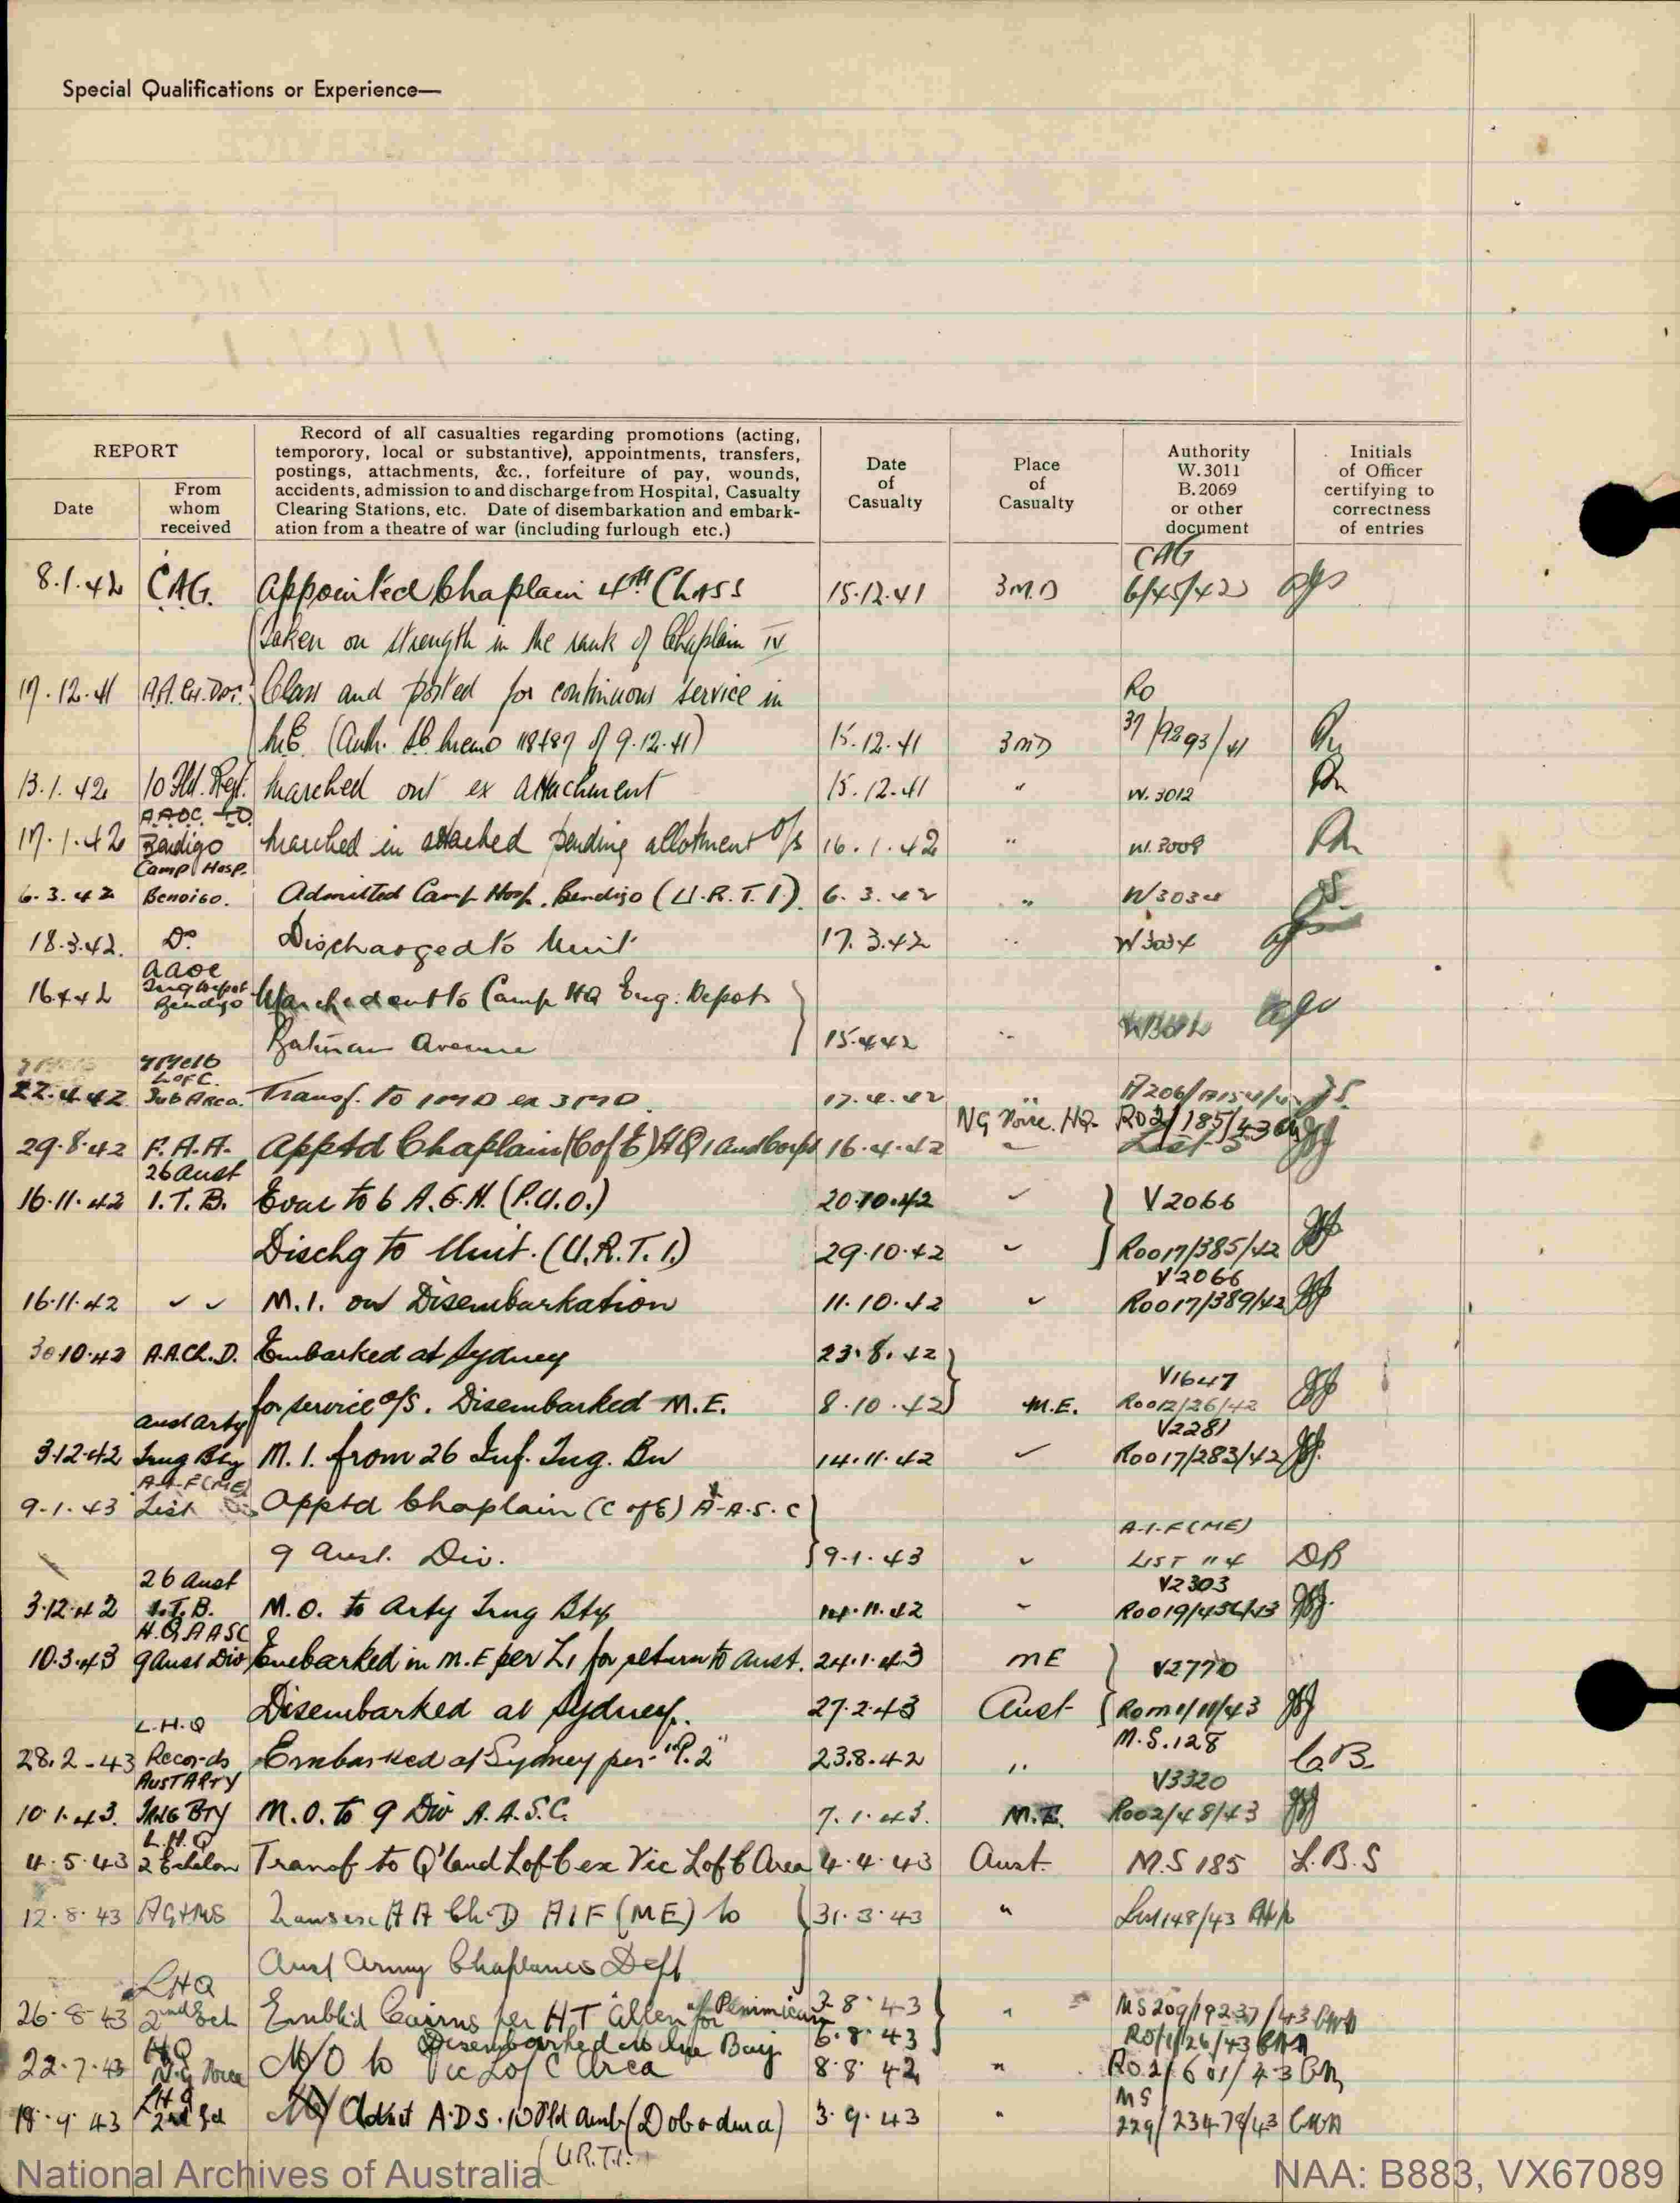 Special Qualifications or Experience—
REPORT
Date
From whom received
Record of all casualties regarding promotions (acting,
temporory, local or substantive), appointments, transfers,
postings, attachments, &c., forfeiture of pay, wounds,
accidents, admission to and discharge from Hospital, Casualty
Clearing Stations, etc. Date of disembarkation and embark-
ation from a theatre of war (including furlough etc.)
Date of Casualty
Place of Casualty
Authority W.3011 B.2069 or other document
Initials of Officer certifying to correctness of entries
CAG
8.1.42 CAG. Appointed Chaplain 4th Class 15.12.41 3 M.D 6/45/42
Taken on strength in the rank of Chaplain IV
17.12.41 Class and posted for continuous service in Ro
(Auth. memo of 9.12.41) 15.12.41 3 MD 37/9293/41
13.1.42 10 Fld. Regt. Marched out ex attachment 15.12.41 " W.3012
A.A.O.C. T.D.
17.1.42 Bendigo Marched in attached pending allotment o/s 16.1.42 " W.3008
Camp Hosp.
6.3.42 Bendigo. Admitted Camp Hosp. Bendigo (U.R.T.I.). 6.3.42 " W3034
18.3.42. Do Discharged to Unit 17.3.42 " W3034
AAOC
16.4.42 Trng Depot Bendigo Marched out to Camp HQ Eng. Depot
Batman Avenue 15.4.42 "
L of C.
22.4.42 Sub Area. Transf. to 1 MD ex 3 MD. 17.4.42
NG Force. HQ. RO21/185/43
29.8.42 F.A.A. Apptd Chaplain (C of E) HQ 1 Aust Corps 16.4.42
26 Aust
16.11.42 I.T.B. Evac to 6 A.G.H. (P.U.O.) 20.10.42 V2066
Dischg to Unit. (U.R.T.I.) 29.10.42 Roo17/385/42
V2066
16.11.42 M.I. on Disembarkation 11.10.42 Roo17/389/42
30.10.42 A.A.Ch.D. Embarked at Sydney 23.8.42
V1647
for service o/s. Disembarked M.E. 8.10.42 M.E. Roo12/26/42
Aust Arty V2281
3.12.42 Trng Bty M.I. from 26 Inf. Trng. Bn 14.11.42 Roo17/283/42
A.I.F (ME)
9.1.43 List Apptd Chaplain (C of E) A.A.S.C
A.I.F (ME)
9 Aust. Div. 9.1.43 LIST "4 DB
26 Aust V2303
3.12.42 I.T.B. M.O. to Arty Trng Bty 14.11.42 Roo19/436/43
H.Q AASC
10.3.43 9 Aust Div Embarked in M.E per L1 for return to Aust. 24.1.43 ME V2770
Disembarked at Sydney. 27.2.43 Aust
L.H.Q M.S.128
28.2.43 Records Embarked at Sydney per "P.2" 23.8.42 " C.B.
AUST ARTY V3320
10.1.43. TRNG BTY M.O. to 9 Div A.A.S.C. 7.1.43. M.E. Roo2/48/43
L.H.Q
4.5.43 2 Echelon Transf to Q'land L of C ex Vic L of C Area 4.4.43 Aust. M.S 185 L.B.S
12.8.43 AG & MS Trans ex AA Ch.D AIF (ME) to 31.3.43 " List 148/43
Aust Army Chaplains Dept
LHQ
26.8.43 2nd Ech Embk'd Cairns per HT 'Allen for 3.8.43 " MS209/19237/43
Disembarked Milne Bay 6.8.43 RO/1/26/43
HQ
22.7.43 N.G Force M/O to Vic L of C Area 8.8.42 " RO 21/601/43
LHQ MS
18.9.43 2nd Ech Admit A.D.S. 10 Fld Amb (Dobodura) 3.9.43 " 229/23478/43
(U.R.T.I.
National Archives of Australia
NAA: B883, VX67089